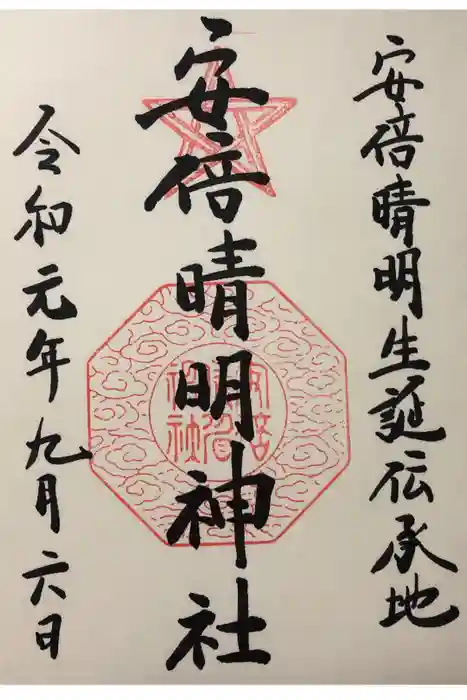 安倍晴明生誕伝承地
安倍晴明神社
令和元年九月六日